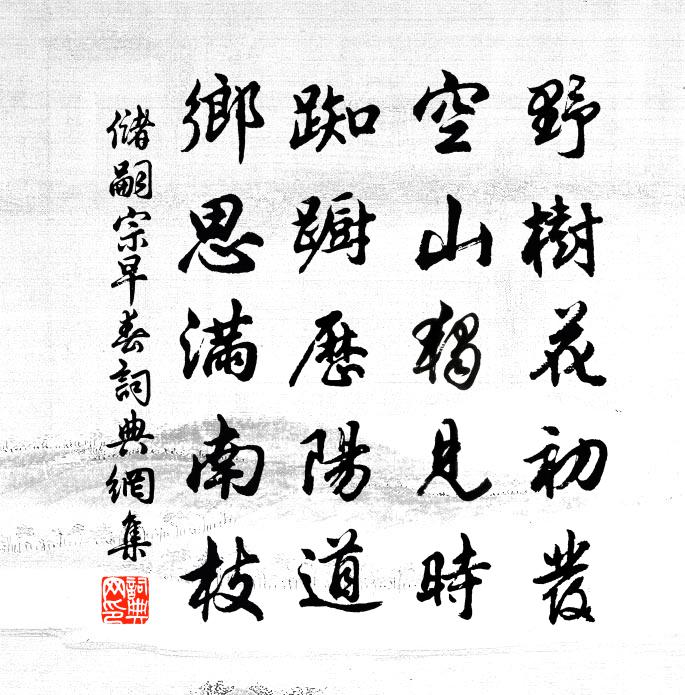 野樹花初發
空山獨見時
踟躕歷陽道
鄉思滿南枝
儲嗣宗早春詞典網集
詞典網印